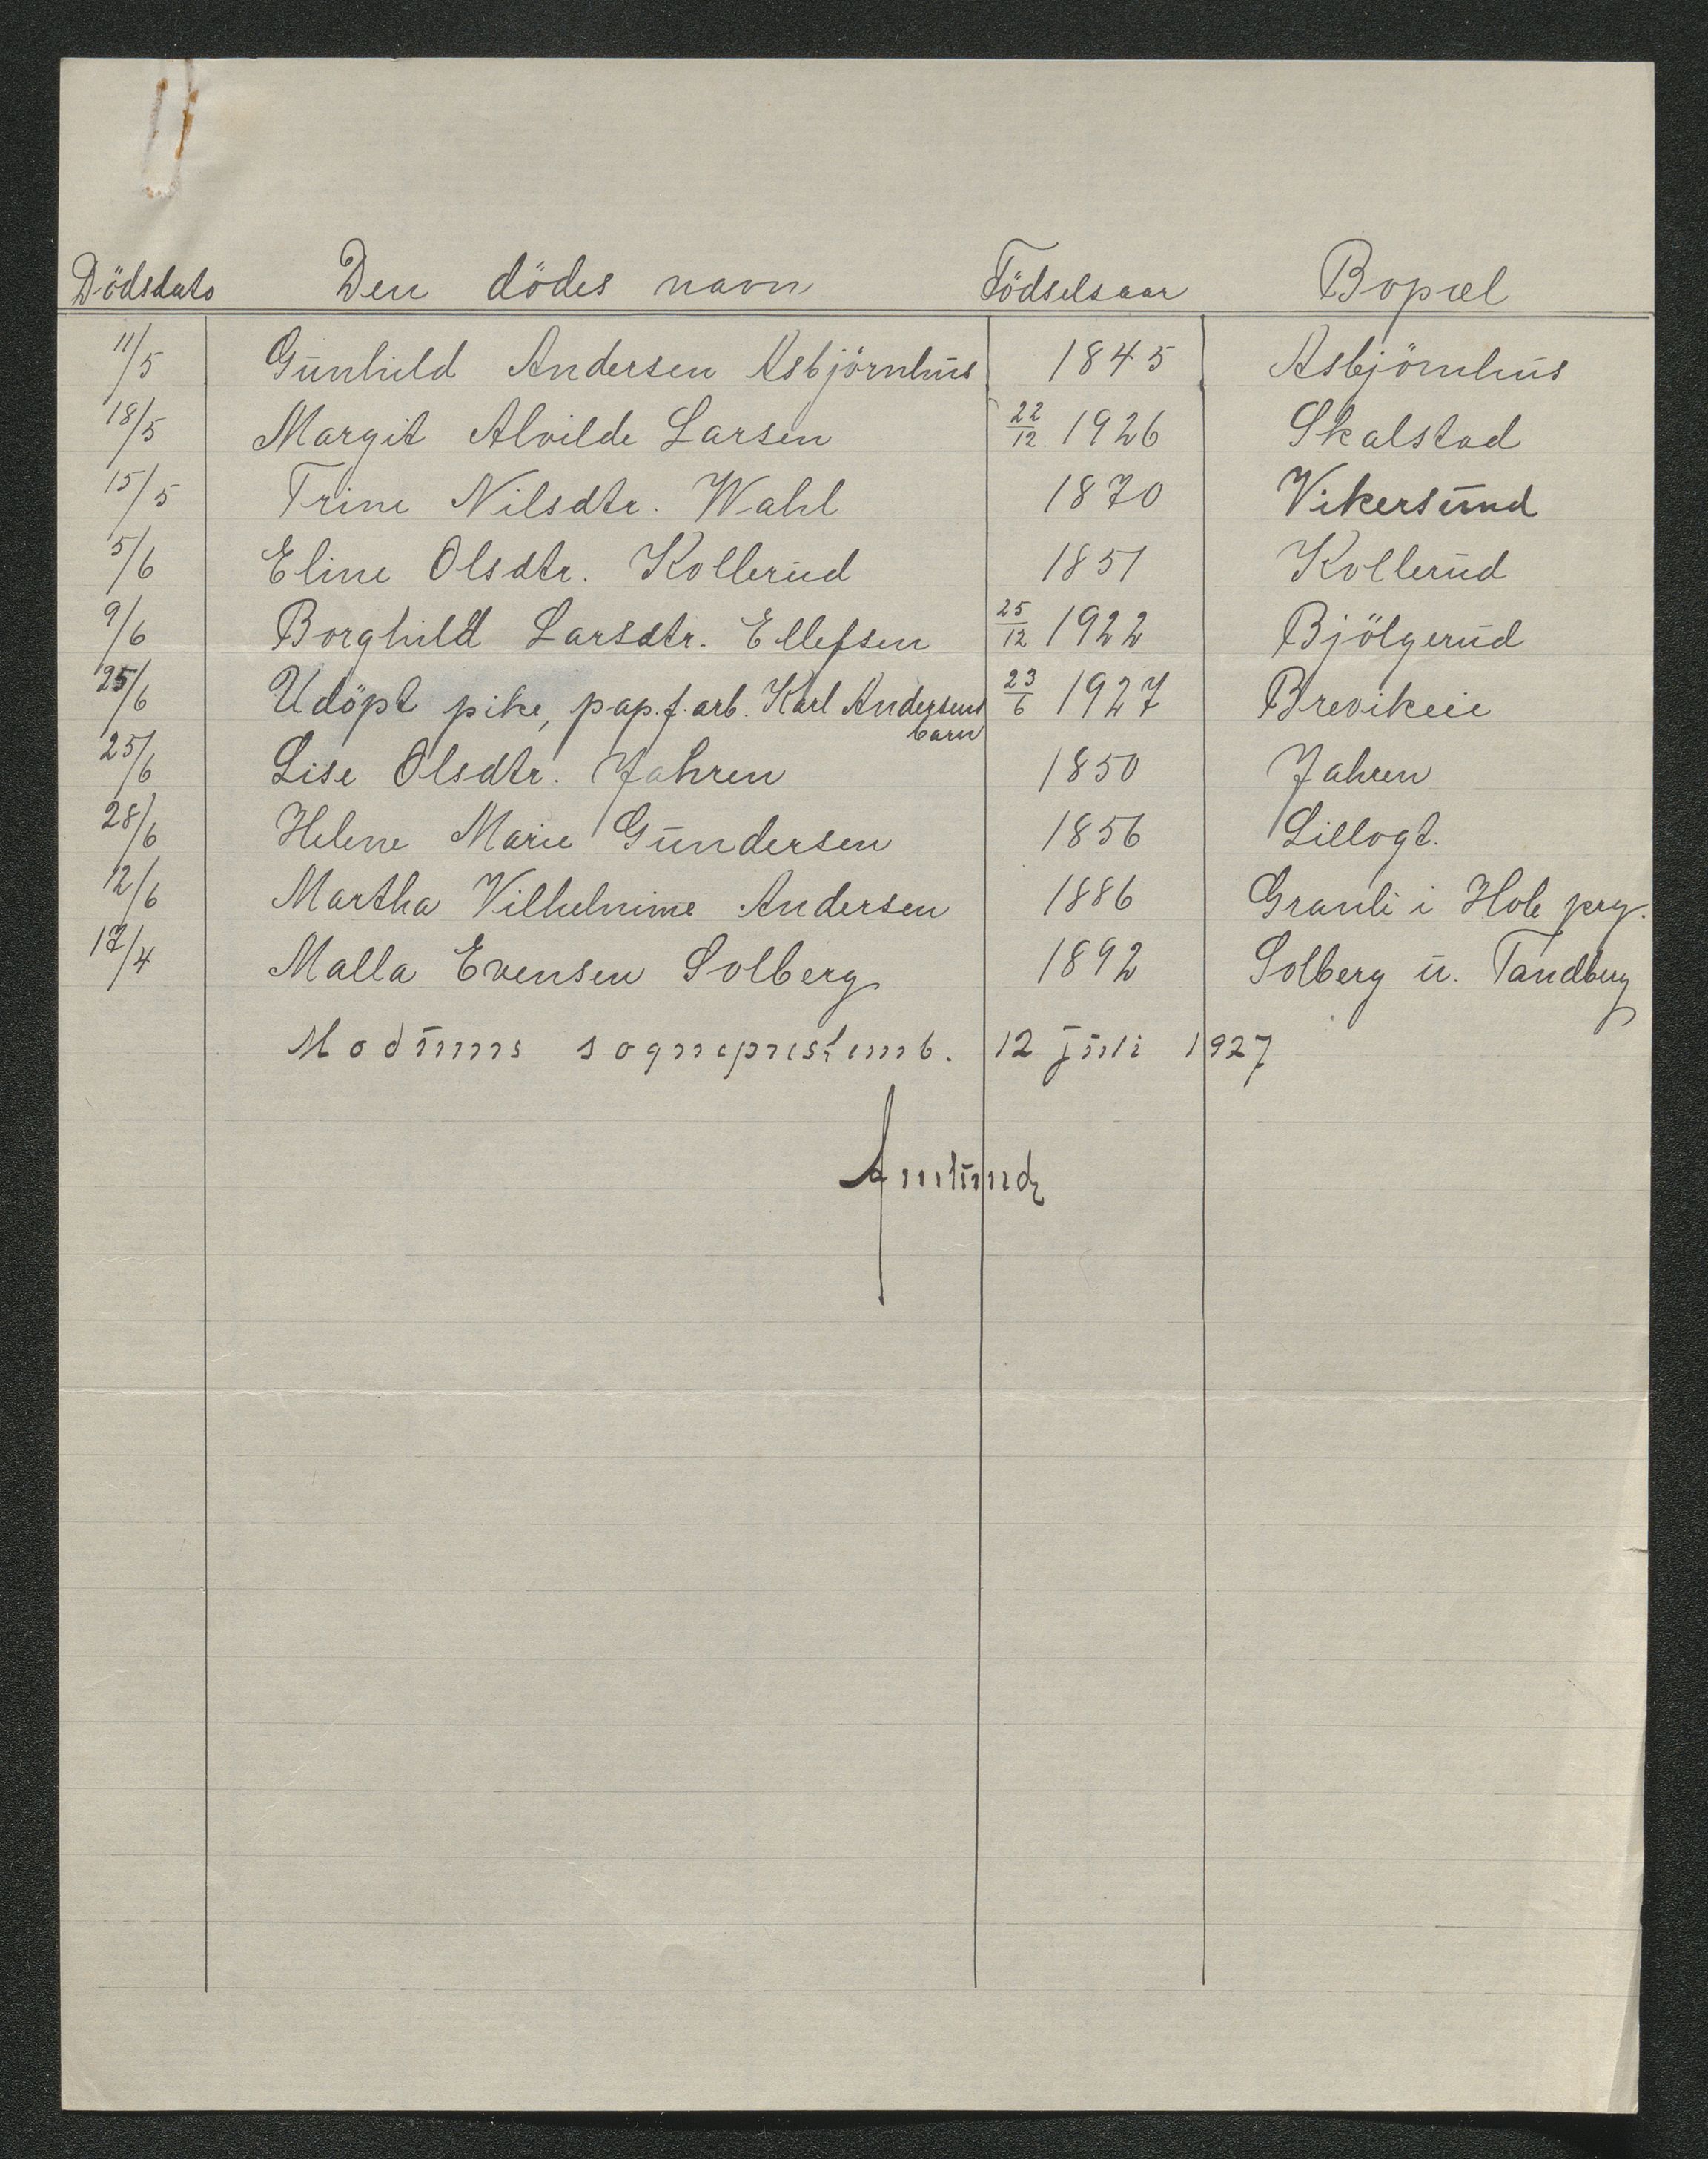 Dödsdato Den dödes navn Födselsaar Bopæl
11/5 Gunhild Andersen Asbjörnhus 1845 Asbjörnhus
18/5 Margit Alvilde Larsen 22/12 1926 Skalstad
15/5 Trine Nilsdtr. Wahl 1870 Vikersund
5/6 Eline Olsdtr. Kollerud 1851 Kollerud
9/6 Borghild Larsdtr. Ellefsen 25/12 1922 Bjölgerud
25/6 Udöpt pike, pap.f.arb. Karl Andersens 23/6 1927 Brevikeie
barn
25/6 Lise Olsdtr. Jahren 1850 Jahren
28/6 Helene Marie Gundersen 1856 Lillogt.
12/6 Martha Vilhelmine Andersen 1886 Granli i Hole prg.
17/4 Malla Evensen Solberg 1892 Solberg u. Tandberg
Modums sogneprestemb. 12 juli 1927
Amlund